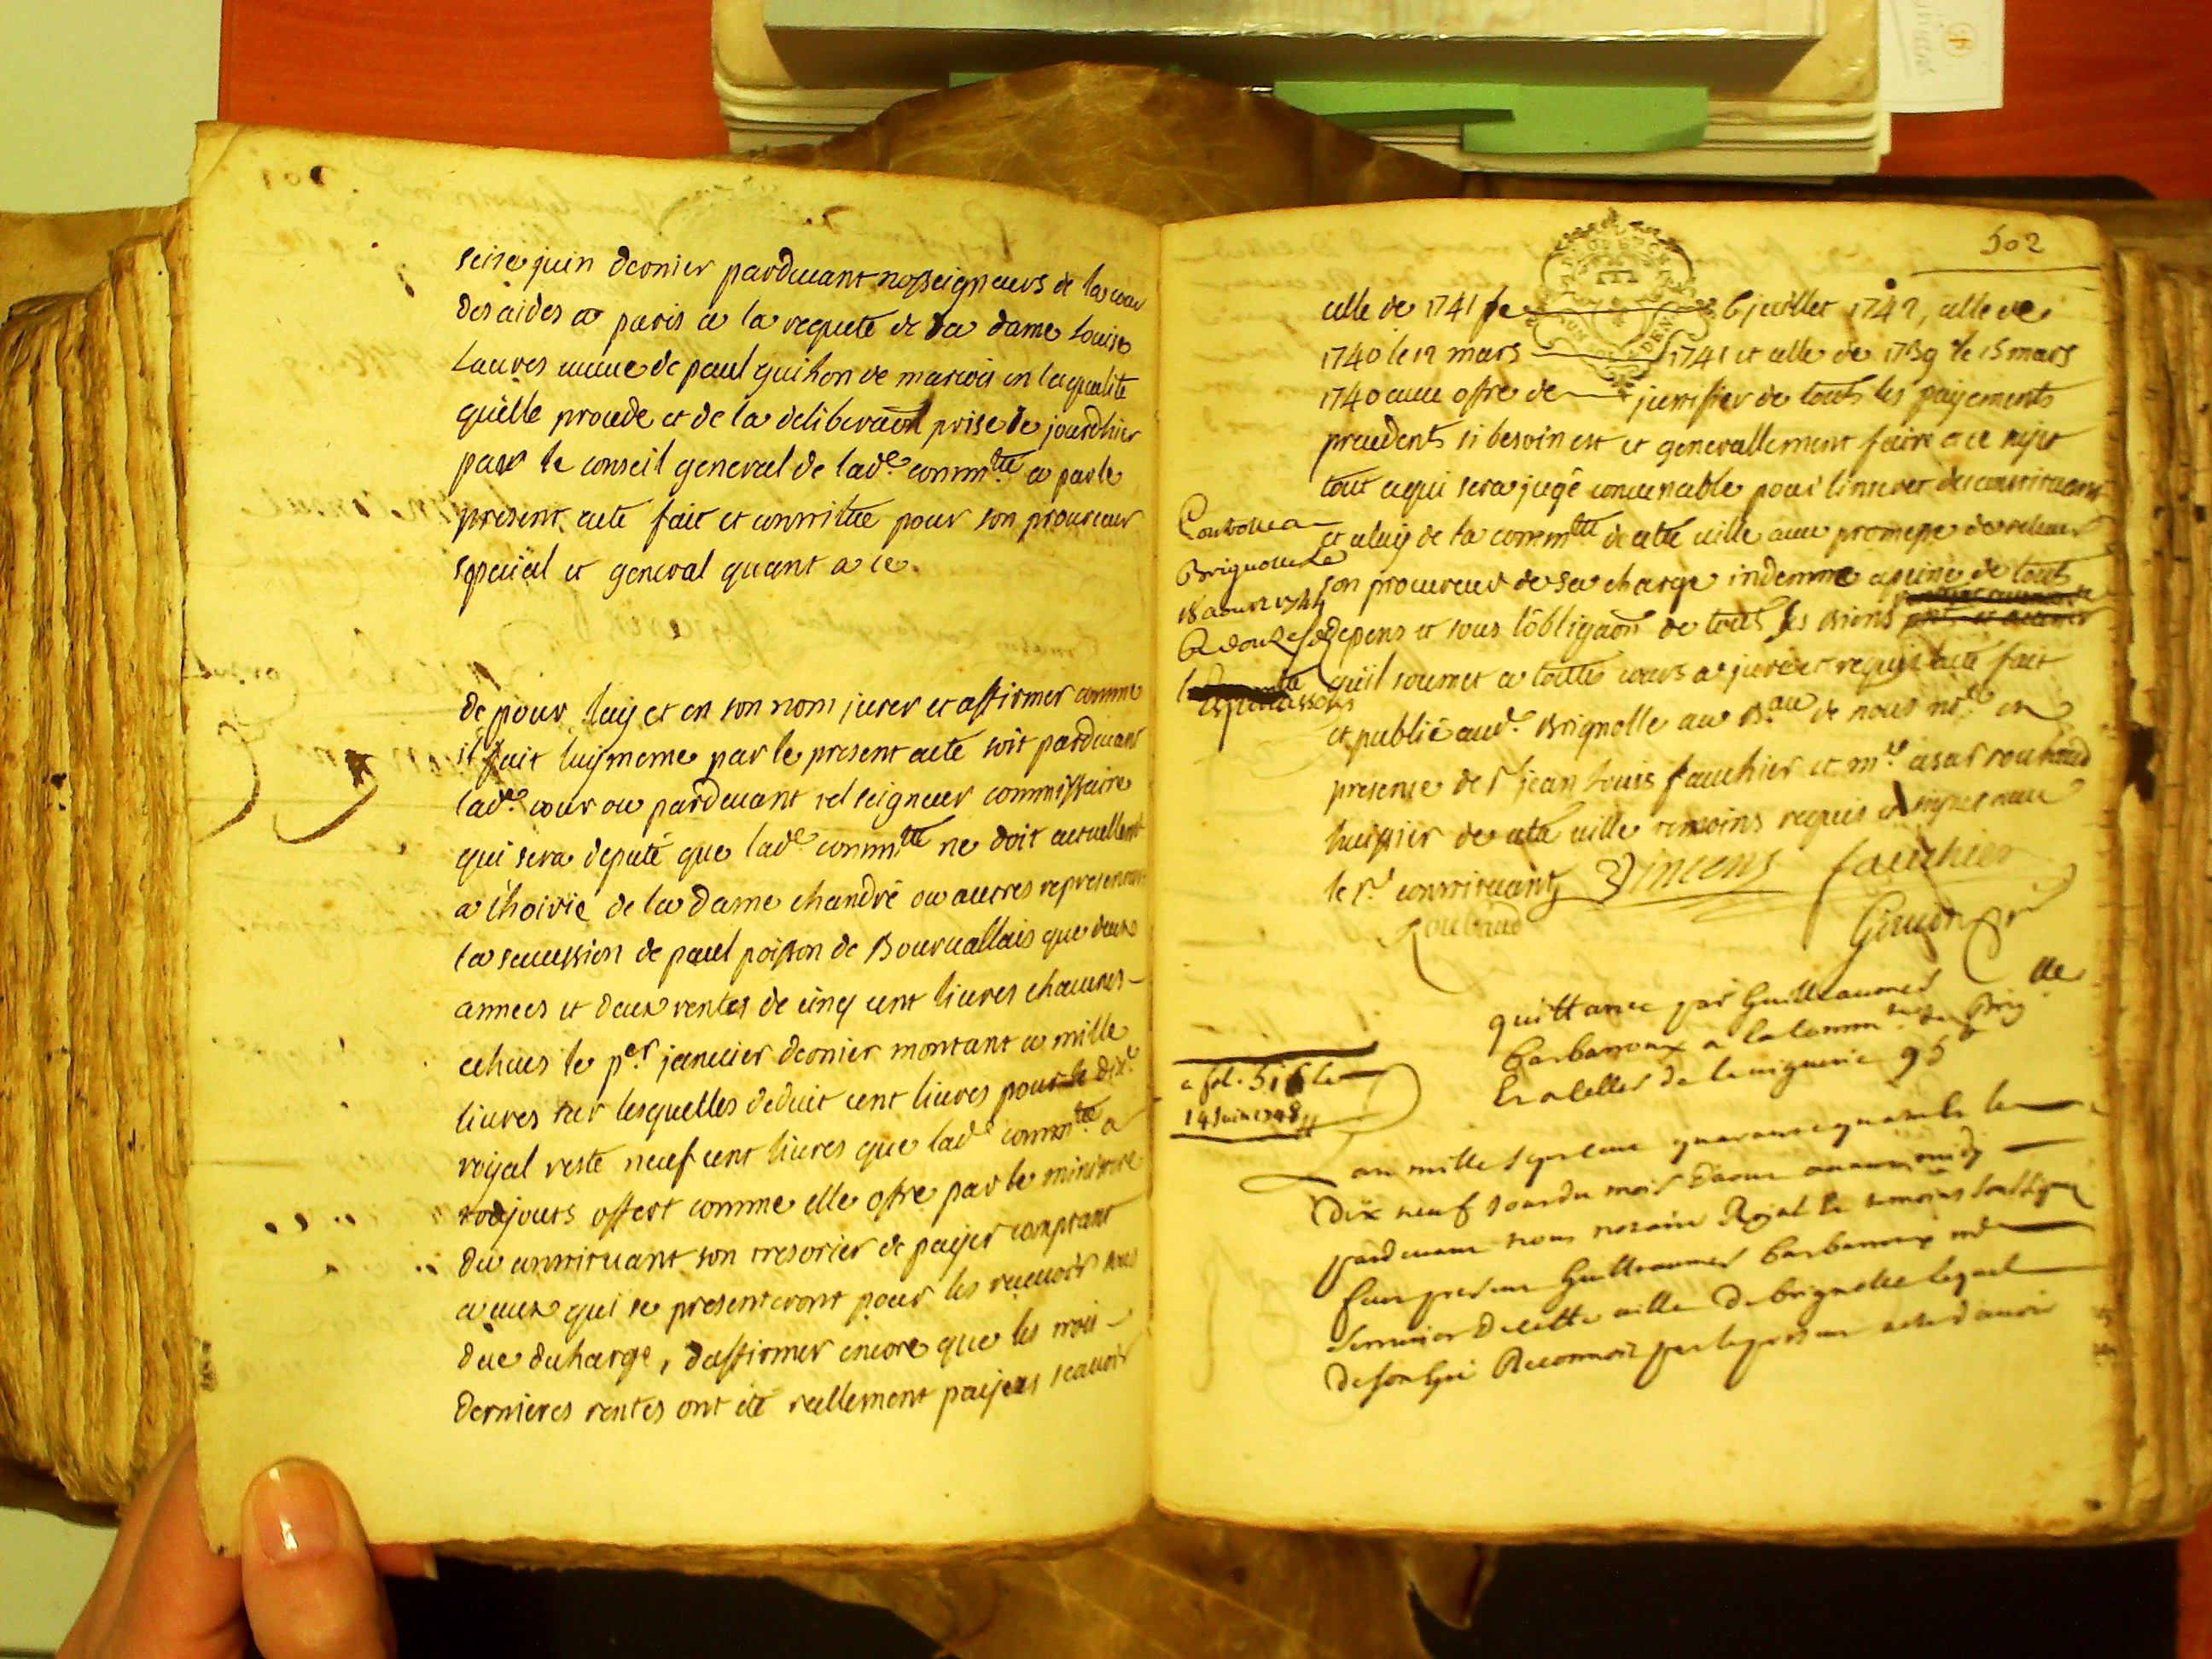 seise juin dernier pardevant nosseigneurs de la cour
des aides a paris a la requete de la dame Louise
Laures veuve de paul guihon de marcois en la qualité
qu'elle procede et de la deliberaõn prise de jourdhier
par le conseil general de lad.e comm.té a par le
present acte fait et constitue pour son procureur
special et general quant a ce.
de pour luy et en son nom jurer et affirmer comme
il fait luy meme par le present acte soit pardevant
lad.e cour ou pardevant tel seigneur commissaire
qui sera deputé que lad.e comm.té ne doit actuellemt
a l'hoirie de la dame chandré ou autres representant
la succession de paul poisson de Bourvallais que deux
annees et deux rentes de cinq cent livres chacunes
echues le p.er janvier dernier montant a mille
livres sur lesquelles deduit cent livres pour le dix.e
royal reste neuf cent livres que lad.e comm.té a
toujours offert comme elle offre par le ministere
du constituant son tresorier de payer comptant
a ceux qui se presenteront pour les recevoir sous
due decharge, d'affirmer encore que les trois
dernieres rentes ont été reellement payees scavoir
502
celle de 1741 le 6 juillet 1742, celle de
1740 le 12 mars 1741 et celle de 1739 le 15 mars
1740 avec offre de justifier de touts les payements
precedents si besoin est et generallement faire a ce sujet
tout ce qui sera jugé convenable pour l'interet du constituant
et celuy de la comm.té de cette ville avec promesse de relever
son procureur de sa charge indemne a peine de touts
depens et sous l'obligaõn de touts les biens
qu'il soumet a toutes cours a juré et requis acte fait
et publié aud.e Brignolle au B.au de nous no.re en
presence de s.r jean Louis fauchier et m.e cesar roubaud
huissier de cette ville temoins requis et signes avec
le s.r constituant Vincens fauchier
Roubaud
Giraud
Controllé a
Brignolle le
18 aoust 1744
R douze sols
quittance par Guilleaumes
Barbaroux a la comm.té de Brig.lle
Et a celles de la viguerie 95
a fol. 516 le
14 Juin 1748
L an mille sept cens quarante quatre & le
dix neuf jour du mois d'aoust avant midy
pardevant nous notaire Royal & temoins soussignes
fut present Guilleaumes Barbaroux m.e
serrurier de cette ville de brignolle lequel
de son gré Reconnoit par le present acte d'avoir